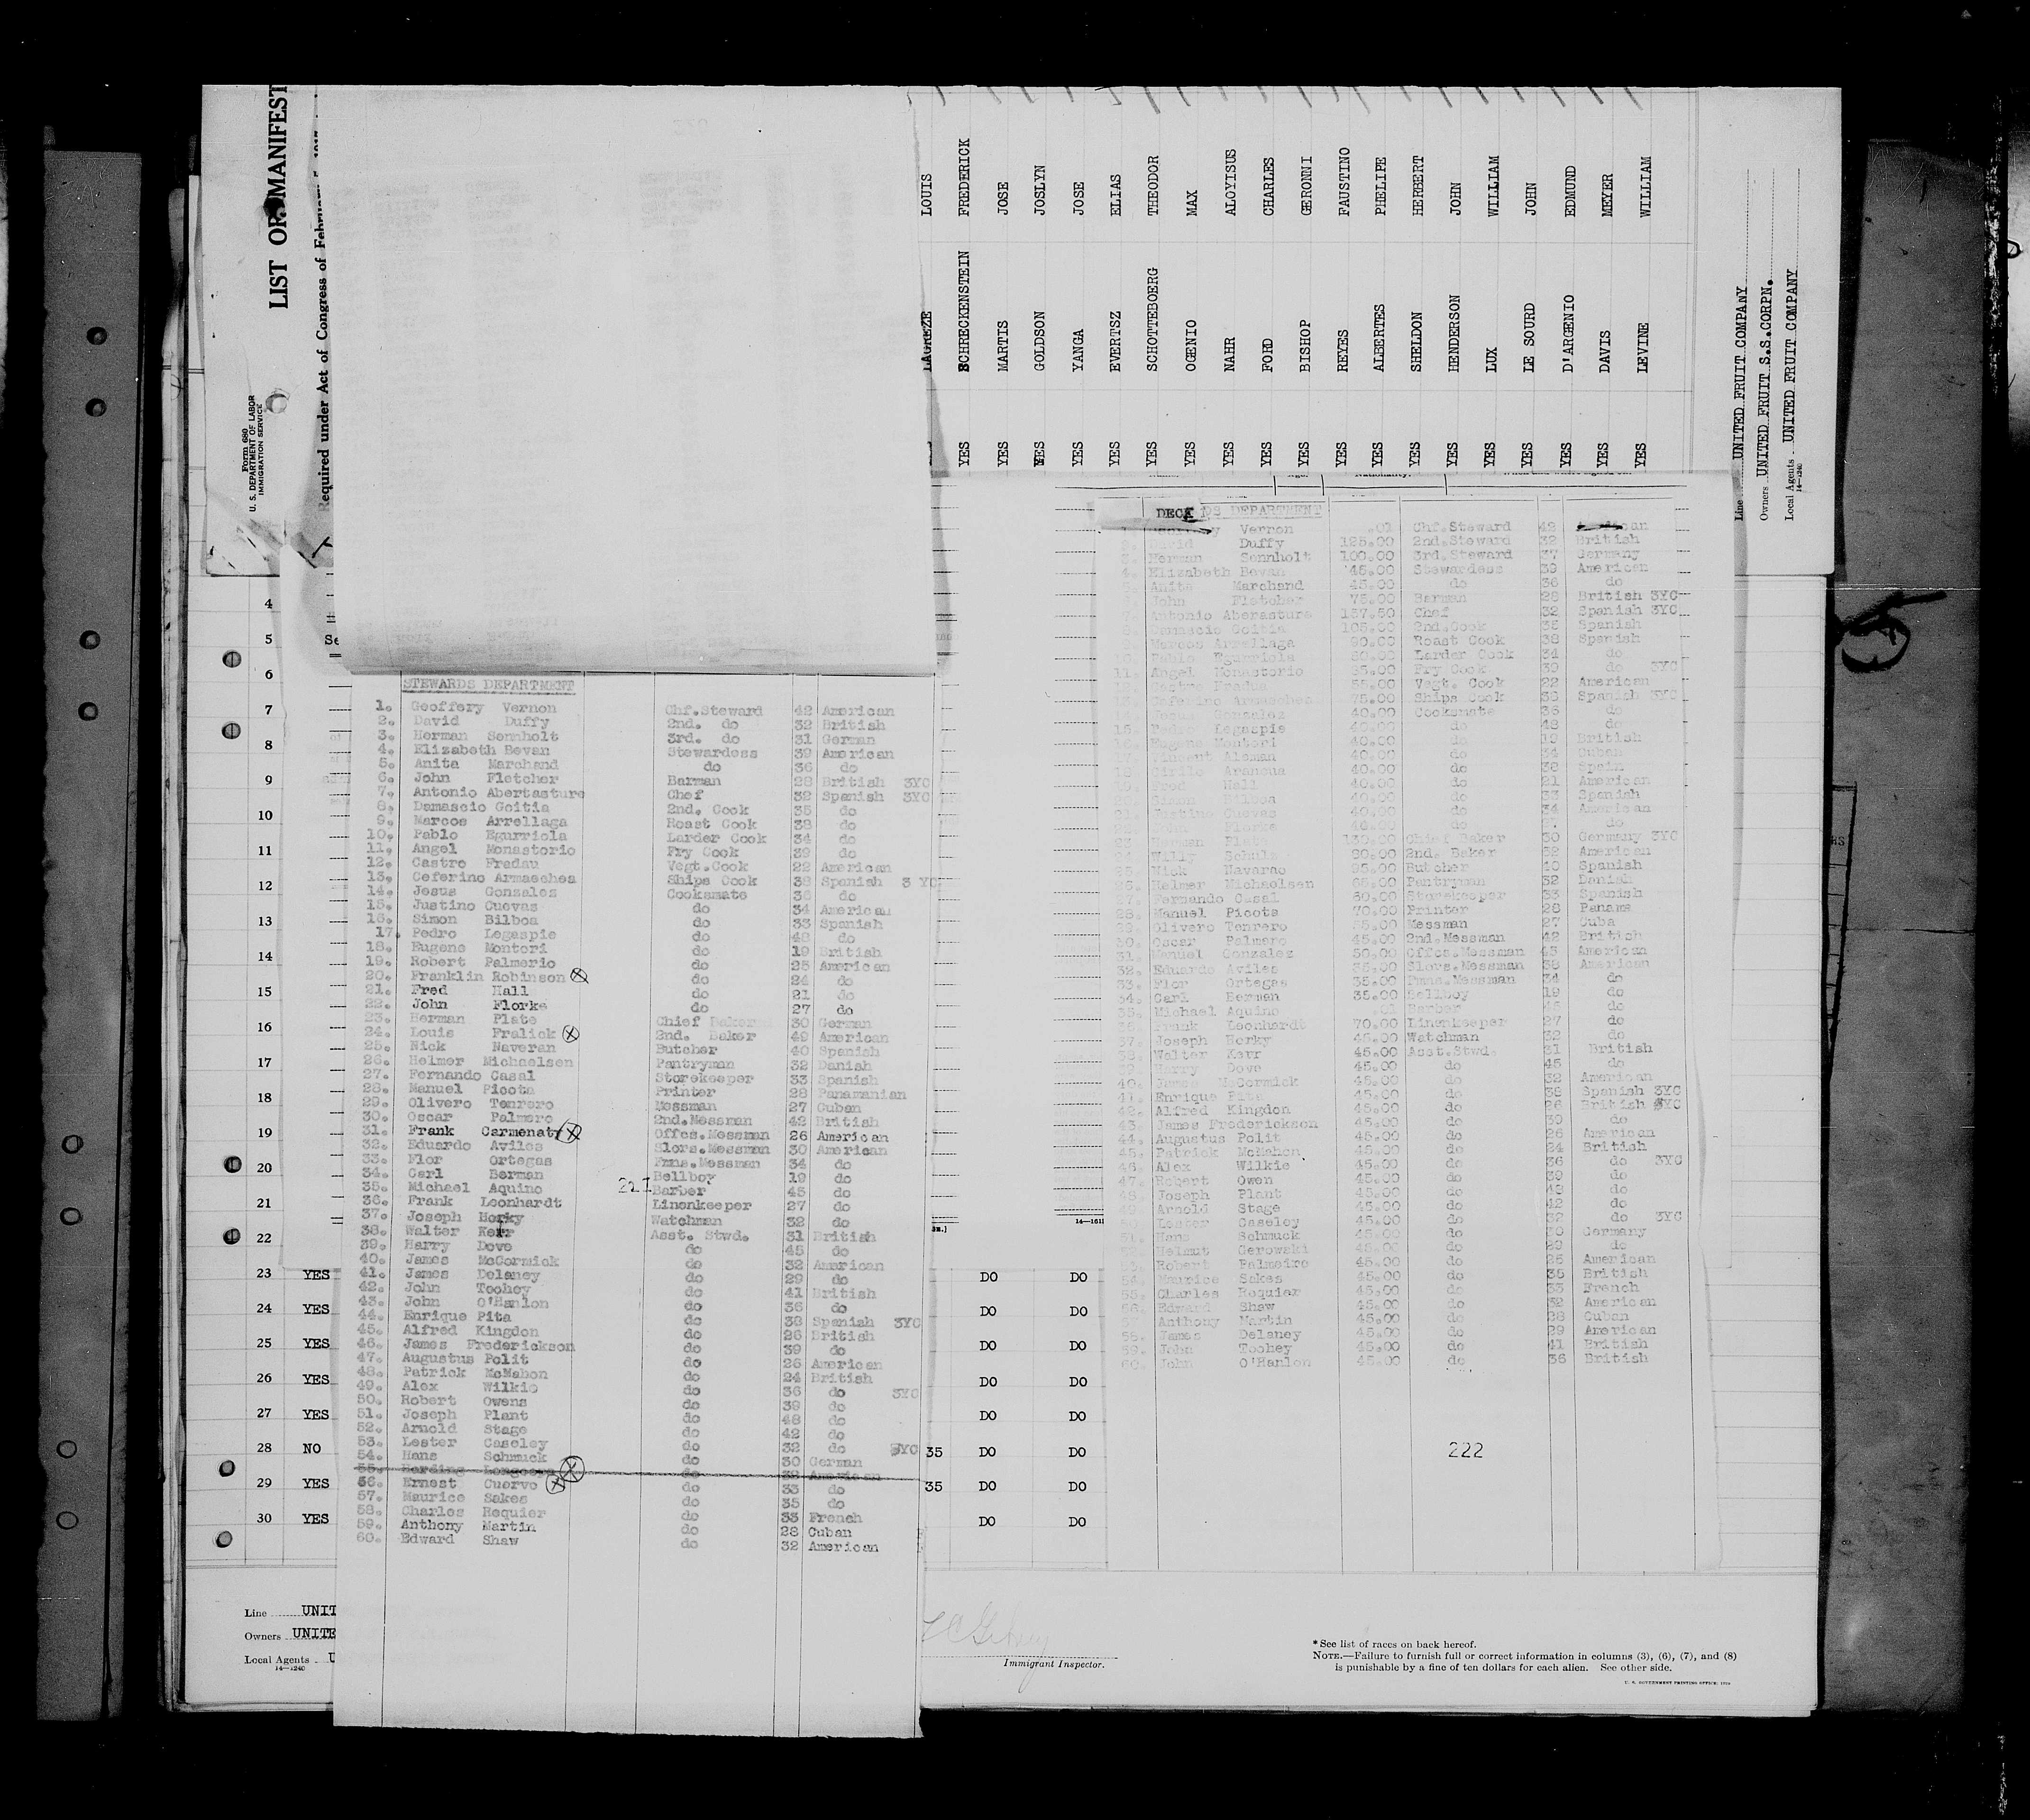 LIST OR MANIFEST
Required under Act of Congress of February 5, 1917
Form 680
U. S. DEPARTMENT OF LABOR
IMMIGRATION SERVICE
LOUIS
SCHRECKENSTEIN FREDERICK YES
MARTIS JOSE YES
GOLDSON JOSLYN YES
YANGA JOSE YES
EVERTSZ ELIAS YES
SCHOTTEBOERG THEODOR YES
OGENIO MAX YES
NAHR ALOYISUS YES
FORD CHARLES YES
BISHOP GERONNI YES
REYES FAUSTINO YES
ALBERTES PHELIPE YES
SHELDON HERBERT YES
HENDERSON JOHN YES
LUX WILLIAM YES
LE SOURD JOHN YES
D'ARGENIO EDMUND YES
DAVIS MEYER YES
LEVINE WILLIAM YES
Line UNITED FRUIT COMPANY
Owners UNITED FRUIT S.S.CORPN.
Local Agents UNITED FRUIT COMPANY
14—1240
4
5
6
7
8
9
10
11
12
13
14
15
16
17
18
19
20
21
22
23 YES DO DO
24 YES DO DO
25 YES DO DO
26 YES DO DO
27 YES DO DO
28 NO 35 DO DO
29 YES 35 DO DO
30 YES DO DO
STEWARDS DEPARTMENT
1. Geoffery Vernon Chf.Steward 42 American
2. David Duffy 2nd. do 32 British
3. Herman Sennholt 3rd. do 31 German
4. Elizabeth Bevan Stewardess 39 American
5. Anita Marchand do 36 do
6. John Fletcher Barman 28 British 3YC
7. Antonio Abertasture Chef 32 Spanish 3YC
8. Damascio Goitia 2nd. Cook 35 do
9. Marcos Arrellaga Roast Cook 38 do
10. Pablo Egurriola Larder Cook 34 do
11. Angel Monastorio Fry Cook 39 do
12. Castro Fredau Vegt.Cook 22 American
13. Ceferino Armaechea Ships Cook 38 Spanish 3 YC
14. Jesus Gonzales Cooksmate 36 do
15. Justino Cuevas do 34 American
16. Simon Bilboa do 33 Spanish
17. Pedro Legaspie do 48 do
18. Eugene Montori do 19 British
19. Robert Palmerio do 25 American
20. Franklin Robinson do 24 do
21. Fred Hall do 21 do
22. John Florke do 27 do
23. Herman Plate Chief Baker 30 German
24. Louis Fralick 2nd. Baker 49 American
25. Nick Naveran Butcher 40 Spanish
26. Helmer Michaelsen Pantryman 32 Danish
27. Fernando Casal Storekeeper 33 Spanish
28. Manuel Picota Printer 28 Panamanian
29. Olivero Tenrero Messman 27 Cuban
30. Oscar Palmero 2nd.Messman 42 British
31. Frank Carmenaty Offcs.Messman 26 American
32. Eduardo Aviles Slors.Messman 30 American
33. Flor Ortegas Fmns.Messman 34 do
34. Carl Berman Bellboy 19 do
35. Michael Aquino 221 Barber 45 do
36. Frank Leonhardt Linenkeeper 27 do
37. Joseph Horky Watchman 32 do
38. Walter Kerr Asst. Stwd. 31 British
39. Harry Dove do 45 do
40. James McCormick do 32 American
41. James Delaney do 29 do
42. John Toohey do 41 British
43. John O'Hanlon do 36 do
44. Enrique Pita do 38 Spanish 3YC
45. Alfred Kingdon do 26 British
46. James Frederickson do 39 do
47. Augustus Polit do 26 American
48. Patrick McMahon do 24 British
49. Alex Wilkie do 36 do 3YC
50. Robert Owens do 39 do
51. Joseph Plant do 48 do
52. Arnold Stage do 42 do
53. Lester Caseley do 32 do 3YC
54. Hans Schmuck do 30 German
55. do American
56. Ernest Cuervo do 33 do
57. Maurice Sakes do 35 do
58. Charles Requier do 33 French
59. Anthony Martin do 28 Cuban
60. Edward Shaw do 32 American
DECK DS DEPARTMENT
Vernon .01 Chf.Steward 42
David Duffy 125.00 2nd.Steward 32 British
Herman Sennholt 100.00 3rd.Steward 37 Germany
4. Elizabeth Bevan 45.00 Stewardess 39 American
Anita Marchand 45.00 do 36 do
John Fletcher 75.00 Barman 28 British 3YC
Antonio Aberasture 157.50 Chef 32 Spanish 3YC
Damascio Goitia 105.00 2nd.Cook 35 Spanish
Marcos Arrellaga 90.00 Roast Cook 38 Spanish
Pablo Egurriola Larder Cook 34 do
11. Angel Monastorio Fry Cook 39 do 3YC
Vegt. Cook 22 American
75.00 Ships Cook 38 Spanish 3YC
40.00 Cooksmate 36 do
15. Pedro Legaspie 40.00 do 48 do
Eugene Montori 40.00 do 19 British
Vincent Aleman 40.00 do 34 Cuban
Cirilo 40.00 do 38 Spain
Fred Hall 40.00 do 21 American
Simon Bilboa 40.00 do 33 Spanish
Justino Cuevas do 34 American
John Florke do 27 do
Herman Plate Chief Baker 30 Germany 3YC
Willy Schulz 90.00 2nd. Baker American
Nick Navarao 95.00 Butcher 40 Spanish
26. Helmer Michaelsen Pantryman 32 Danish
27. Fernando Casal 60.00 Storekeeper 33 Spanish
28. Manuel Picota 70.00 Printer 28 Panama
29. Olivero Tenrero Messman 27 Cuba
30. Oscar Palmero 45.00 2nd.Messman 42 British
31. Manuel Gonzalez 50.00 Offcs.Messman 43 American
32. Eduardo Aviles Slors.Messman American
33. Flor Ortegas 35.00 Fmns.Messman 34 do
34. Carl Berman 35.00 Bellboy 19 do
35. Michael Aquino .01 Barber 45 do
36. Frank Leonhardt 70.00 Linenkeeper 27 do
37. Joseph Horky 45.00 Watchman 32 do
38. Walter Kerr 45.00 Asst.Stwd. 31 British
39. Harry Dove 45.00 do 45 do
40. James McCormick 45.00 do 32 American
41. Enrique Pita 45.00 do 38 Spanish 3YC
42. Alfred Kingdon 45.00 do 26 British 3YC
43. James Frederickson 45.00 do 39 do
44. Augustus Polit 45.00 do 26 American
45. Patrick McMahon 45.00 do 24 British
46. Alex Wilkie 45.00 do 36 do 3YC
47. Robert Owen 45.00 do 39 do
48. Joseph Plant 45.00 do 48 do
Arnold Stage 45.00 do 42 do
Lester Caseley 45.00 do 32 do 3YC
51. Hans Schmuck 45.00 do 30 Germany
Helmut Gerowski 45.00 do 29 do
Robert Palmeiro 45.00 do 25 American
54. Maurice Sakes 45.00 do 35 British
55. Charles Requier 45.00 do 33 French
56. Edward Shaw 45.00 do 32 American
Anthony Martin 45.00 do 28 Cuban
58. James Delaney 45.00 do 29 American
59. John Toohey 45.00 do 41 British
60. John O'Hanlon 45.00 do 36 British
222
Line UNIT
Owners UNITE
Local Agents U
14—1240
Immigrant Inspector.
* See list of races on back hereof.
NOTE.—Failure to furnish full or correct information in columns (3), (6), (7), and (8)
is punishable by a fine of ten dollars for each alien. See other side.
U. S. GOVERNMENT PRINTING OFFICE